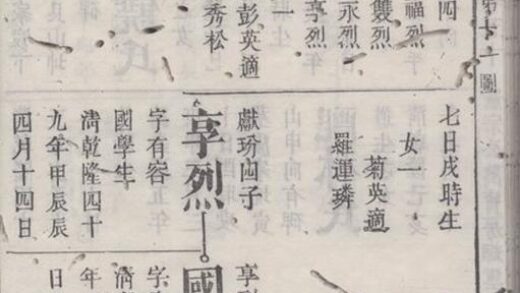 第十一圖
四
福烈
雙烈
永烈
享烈
一
彭英適
秀松
七日戌時生
女一
菊英適
羅運璘
獻玢四子
享烈
字有容
國學生
清乾隆四十
九年甲辰辰
四月十四日
享
國
字
清
年
日